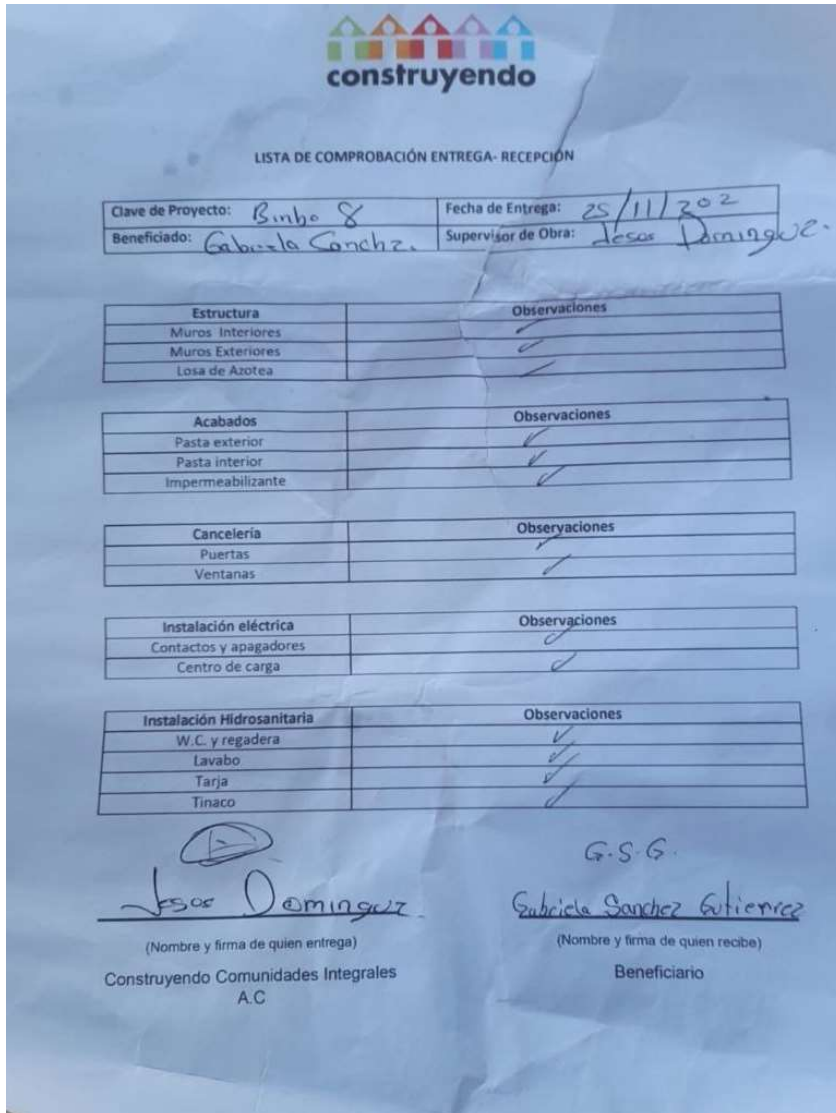 construyendo
LISTA DE COMPROBACIÓN ENTREGA- RECEPCIÓN
Clave de Proyecto: Binbo 8 Fecha de Entrega: 25/11/202
Beneficiado: Gabriela Sanchz. Supervisor de Obra: Jesos Dominguz.
Estructura Observaciones
Muros Interiores ✓
Muros Exteriores ✓
Losa de Azotea ✓
Acabados Observaciones
Pasta exterior ✓
Pasta interior ✓
Impermeabilizante ✓
Cancelería Observaciones
Puertas ✓
Ventanas ✓
Instalación eléctrica Observaciones
Contactos y apagadores ✓
Centro de carga ✓
Instalación Hidrosanitaria Observaciones
W.C. y regadera ✓
Lavabo ✓
Tarja ✓
Tinaco ✓
G.S.G.
Jesos Dominguz. Gabriela Sanchez Gutierrez
(Nombre y firma de quien entrega) (Nombre y firma de quien recibe)
Construyendo Comunidades Integrales Beneficiario
A.C